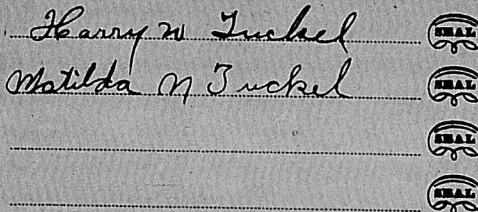 Harry W Tuckel SEAL
Matilda N Tuckel SEAL
SEAL
SEAL